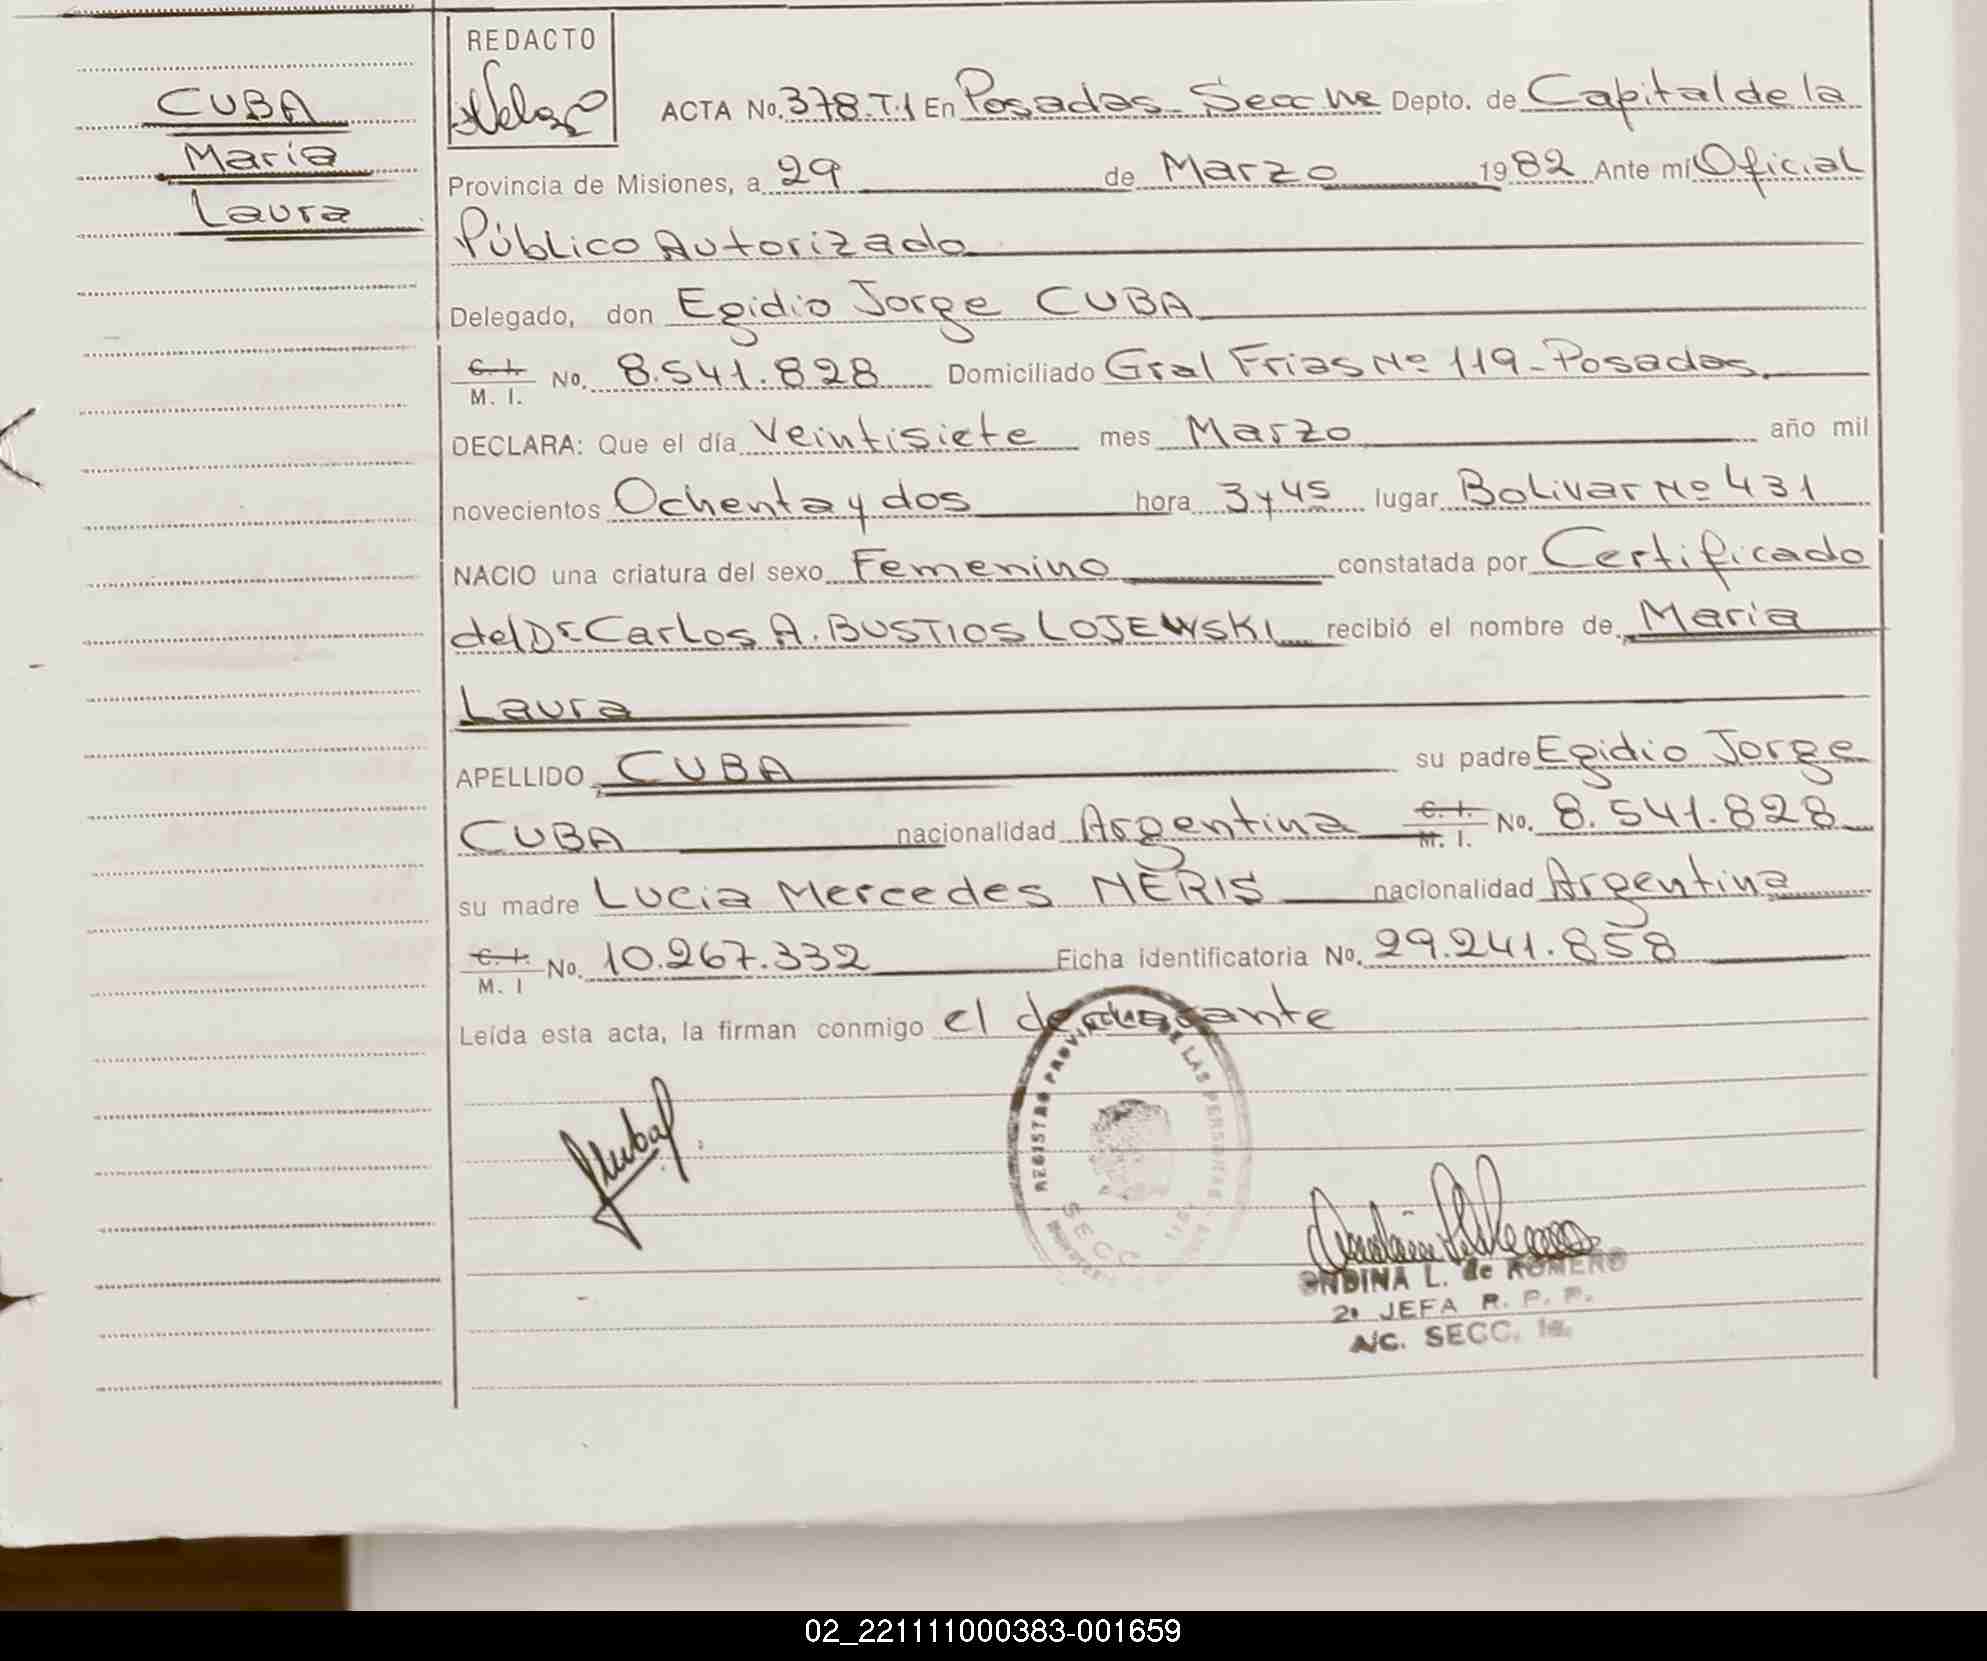 CUBA
María
Laura
REDACTO
ACTA No. 378.T.1 En Posadas - Secc 1ra Depto. de Capital de la
Provincia de Misiones, a 29 de Marzo 1982 Ante mí Oficial
Público Autorizado
Delegado, don Egidio Jorge CUBA
C. I. M. I. No. 8.541.828 Domiciliado Gral Frias Nº 119 - Posadas.
DECLARA: Que el día Veintisiete mes Marzo año mil
novecientos Ochenta y dos hora 3 y 45 lugar Bolivar Nº 431
NACIO una criatura del sexo Femenino constatada por Certificado
del Dr Carlos A. BUSTIOS LOJEWSKI recibió el nombre de María
Laura
APELLIDO CUBA su padre Egidio Jorge
CUBA nacionalidad Argentina C. I. M. I. No. 8.541.828
su madre Lucia Mercedes NERIS nacionalidad Argentina
C. I. M. I No. 10.267.332 Ficha identificatoria No. 29.241.858
Leída esta acta, la firman conmigo el declarante
REGISTRO PROVINCIAL DE LAS PERSONAS
SECC
ONDINA L. de ROMERO
2a JEFA R. P. P.
A/C. SECC. 1a.
02_221111000383-001659